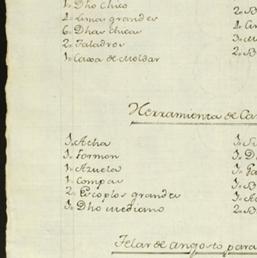 1. Dho chico
2. Limas grandes
6. Dhas chicas
2. Taladros
1. Caxa de Moldar
2. B
2.
3.
2. B
Herramienta de Ca
1. Acha
1. Formon
1. Azuela
1. Compas
2. Escoplos grandes
1. Dho mediano
1.
1. D
1.
1. B
1.
2. B
Telar de angosto para